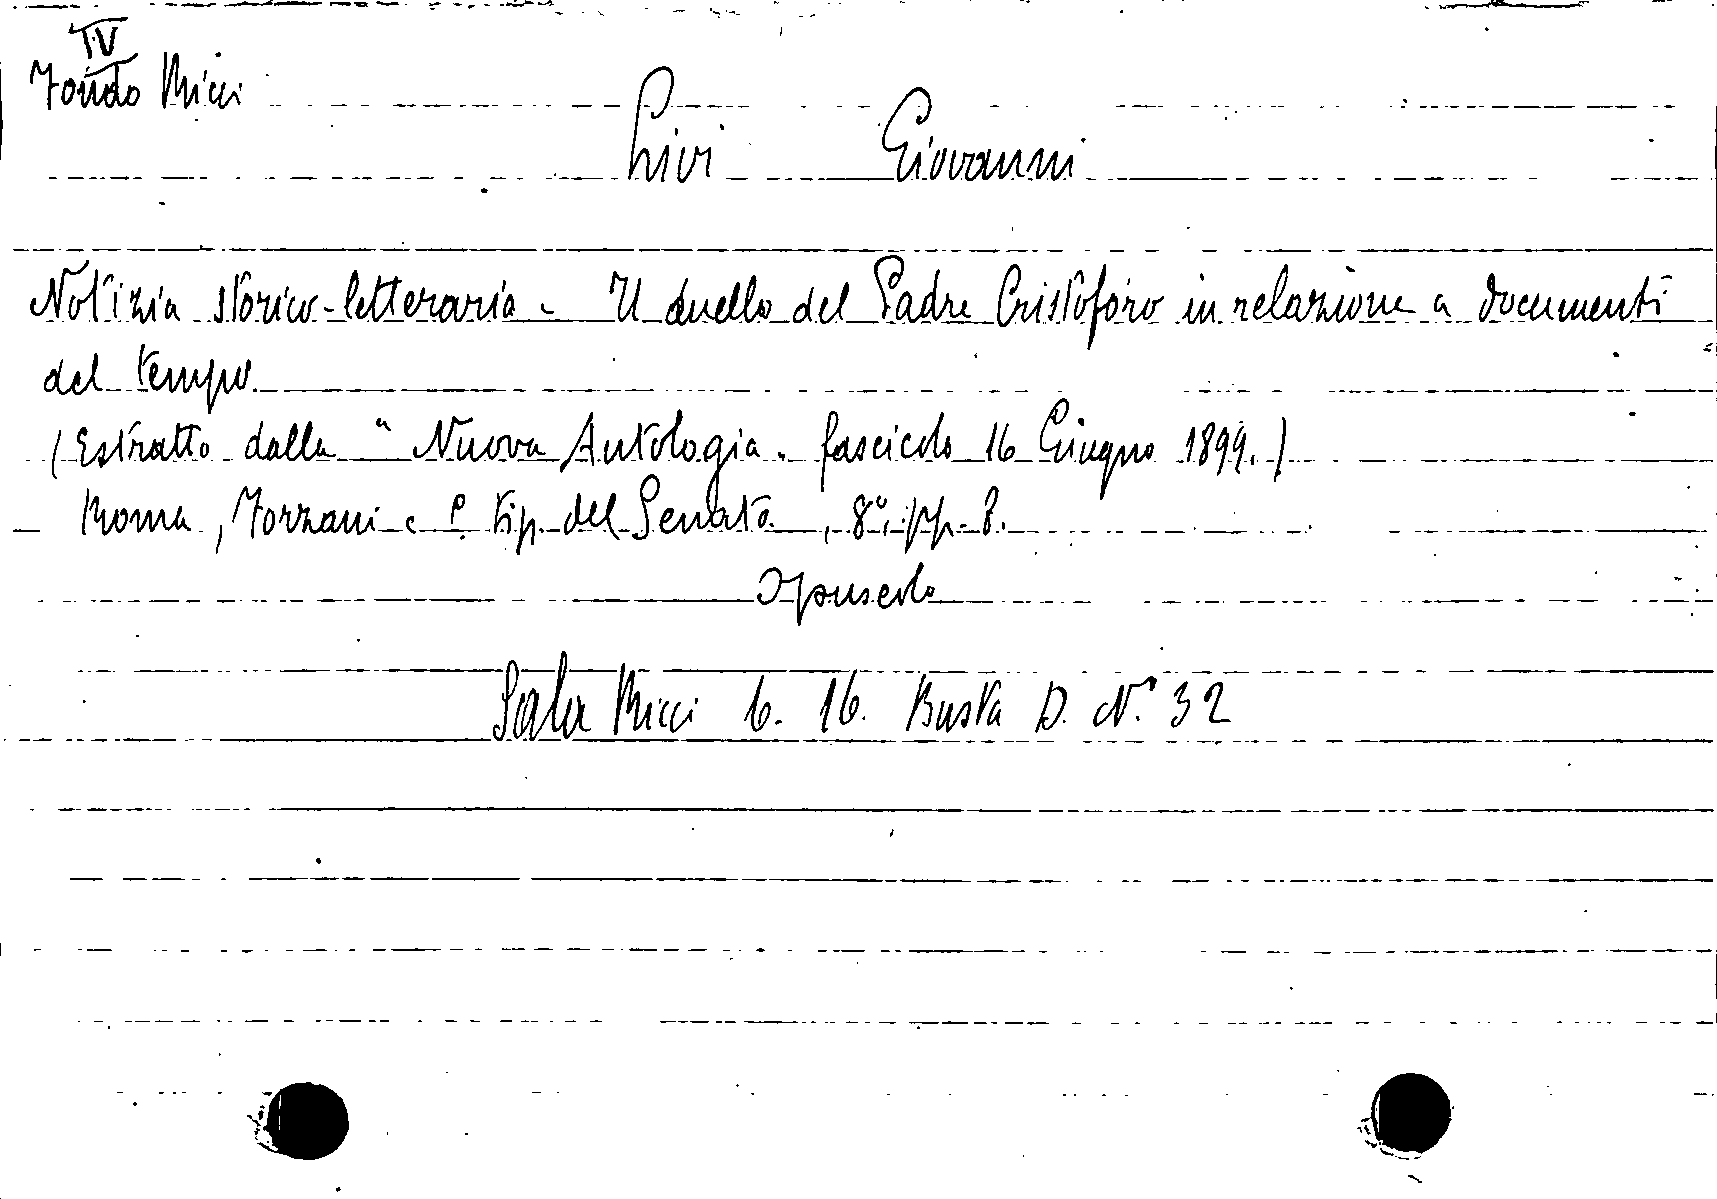 IV
Fondo Ricci
Livi Giovanni
Notizia storico-letteraria - Il duello del Padre Cristoforo in relazione a documenti
del tempo
(Estratto dalla " Nuova Antologia. fascicolo 16 Giugno 1899.)
Roma, Forzani e C. tip. del Senato, 8°, pp. 8.
Opuscolo
Sala Ricci 6. 16. Busta D. N.° 32